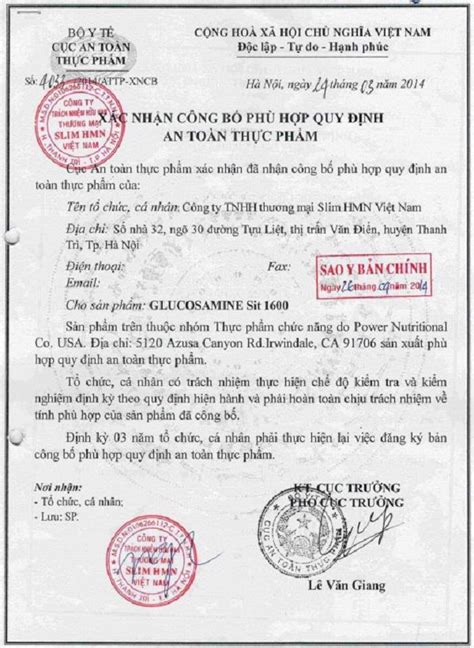 BỘ Y TẾ
CỤC AN TOÀN
THỰC PHẨM
CỘNG HOÀ XÃ HỘI CHỦ NGHĨA VIỆT NAM
Độc lập - Tự do - Hạnh phúc
Số: 4033 /2014/ATTP-XNCB
Hà Nội, ngày 24 tháng 03 năm 2014
CÔNG TY
TRÁCH NHIỆM HỮU HẠN
THƯƠNG MẠI
SLIM HMN
VIỆT NAM
H. THANH TRÌ - T.P HÀ NỘI
XÁC NHẬN CÔNG BỐ PHÙ HỢP QUY ĐỊNH
AN TOÀN THỰC PHẨM
Cục An toàn thực phẩm xác nhận đã nhận công bố phù hợp quy định an
toàn thực phẩm của:
Tên tổ chức, cá nhân: Công ty TNHH thương mại Slim HMN Việt Nam
Địa chỉ: Số nhà 32, ngõ 30 đường Tựu Liệt, thị trấn Văn Điển, huyện Thanh
Trì, Tp. Hà Nội
Điện thoại: Fax:
Email:
SAO Y BẢN CHÍNH
Ngày 26 tháng 09 năm 2014
Cho sản phẩm: GLUCOSAMINE Sit 1600
Sản phẩm trên thuộc nhóm Thực phẩm chức năng do Power Nutritional
Co. USA. Địa chỉ: 5120 Azusa Canyon Rd.Irwindale, CA 91706 sản xuất phù
hợp quy định an toàn thực phẩm.
Tổ chức, cá nhân có trách nhiệm thực hiện chế độ kiểm tra và kiểm
nghiệm định kỳ theo quy định hiện hành và phải hoàn toàn chịu trách nhiệm về
tính phù hợp của sản phẩm đã công bố.
Định kỳ 03 năm tổ chức, cá nhân phải thực hiện lại việc đăng ký bản
công bố phù hợp quy định an toàn thực phẩm.
Nơi nhận:
- Tổ chức, cá nhân;
- Lưu: SP.
KT. CỤC TRƯỞNG
PHÓ CỤC TRƯỞNG
CÔNG TY
TRÁCH NHIỆM HỮU HẠN
THƯƠNG MẠI
SLIM HMN
VIỆT NAM
H. THANH TRÌ - T.P HÀ NỘI
CỤC AN TOÀN THỰC PHẨM
Lê Văn Giang